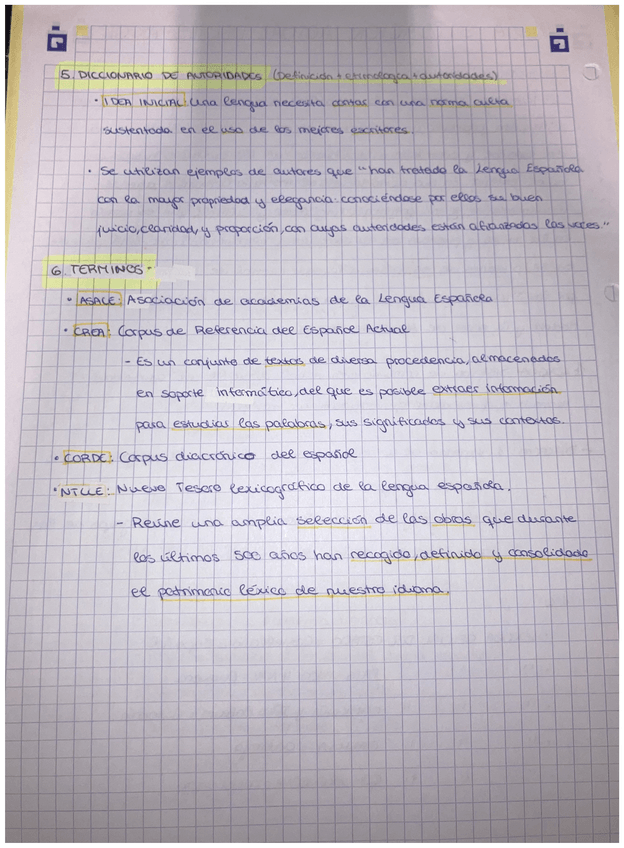 5. DICCIONARIO DE AUTORIDADES (Definición + etimología + autoridades)
· IDEA INICIAL: Una lengua necesita contar con una norma culta
sustentada en el uso de los mejores escritores.
· Se utilizan ejemplos de autores que "han tratado la Lengua Española
con la mayor propiedad y elegancia: conociéndose por ellos su buen
juicio, claridad, y proporción, con cuyas autoridades están afianzadas las voces."
6. TERMINOS-
· ASALE: Asociación de academias de la Lengua Española
· CREA: Corpus de Referencia del Español Actual
- Es un conjunto de textos de diversa procedencia, almacenados
en soporte informático, del que es posible extraer información
para estudiar las palabras, sus significados y sus contextos.
· CORDE: Corpus diacrónico del español
· NTLLE: Nuevo Tesoro lexicográfico de la lengua española.
- Reúne una amplia selección de las obras que durante
los últimos 500 años han recogido, definido y consolidado
el patrimonio léxico de nuestro idioma.